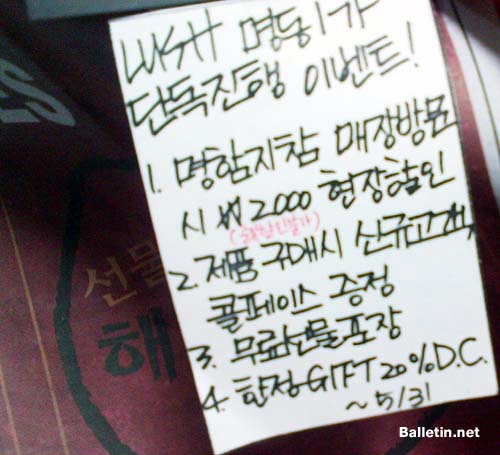 LUSH 명동1가
단독진행 이벤트!
1. 명함지참 매장방문
시 ₩2000 현장할인
2. 제품 구매시 신규고객,
콜페이스 증정
3. 무료선물포장
4. 한정GIFT 20% D.C.
~5/31
ES
선물
해
Balletin.net